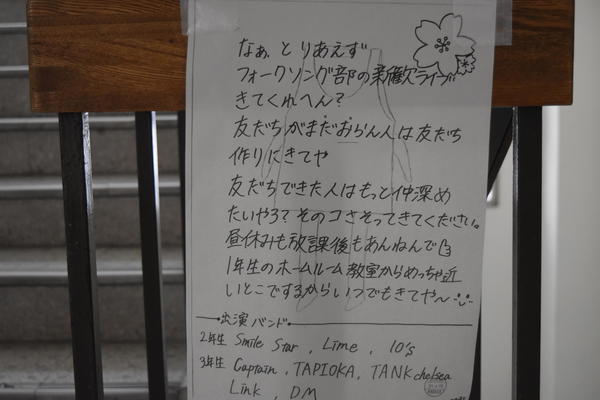 なぁ、とりあえず
フォークソング部の新歓ライブ
きてくれへん?
友だちがまだおらん人は友だち
作りにきてや
友だちできた人はもっと仲深め
たいやろ?そのコさそってきてください。
昼休みも放課後もあんねんで
1年生のホームルーム教室からめっちゃ近
いとこでするからいつでもきてや〜
出演バンド
2年生 Smile Star, Lime, 10's
3年生 Captain, TAPIOKA, TANK chelsea
Link, DM